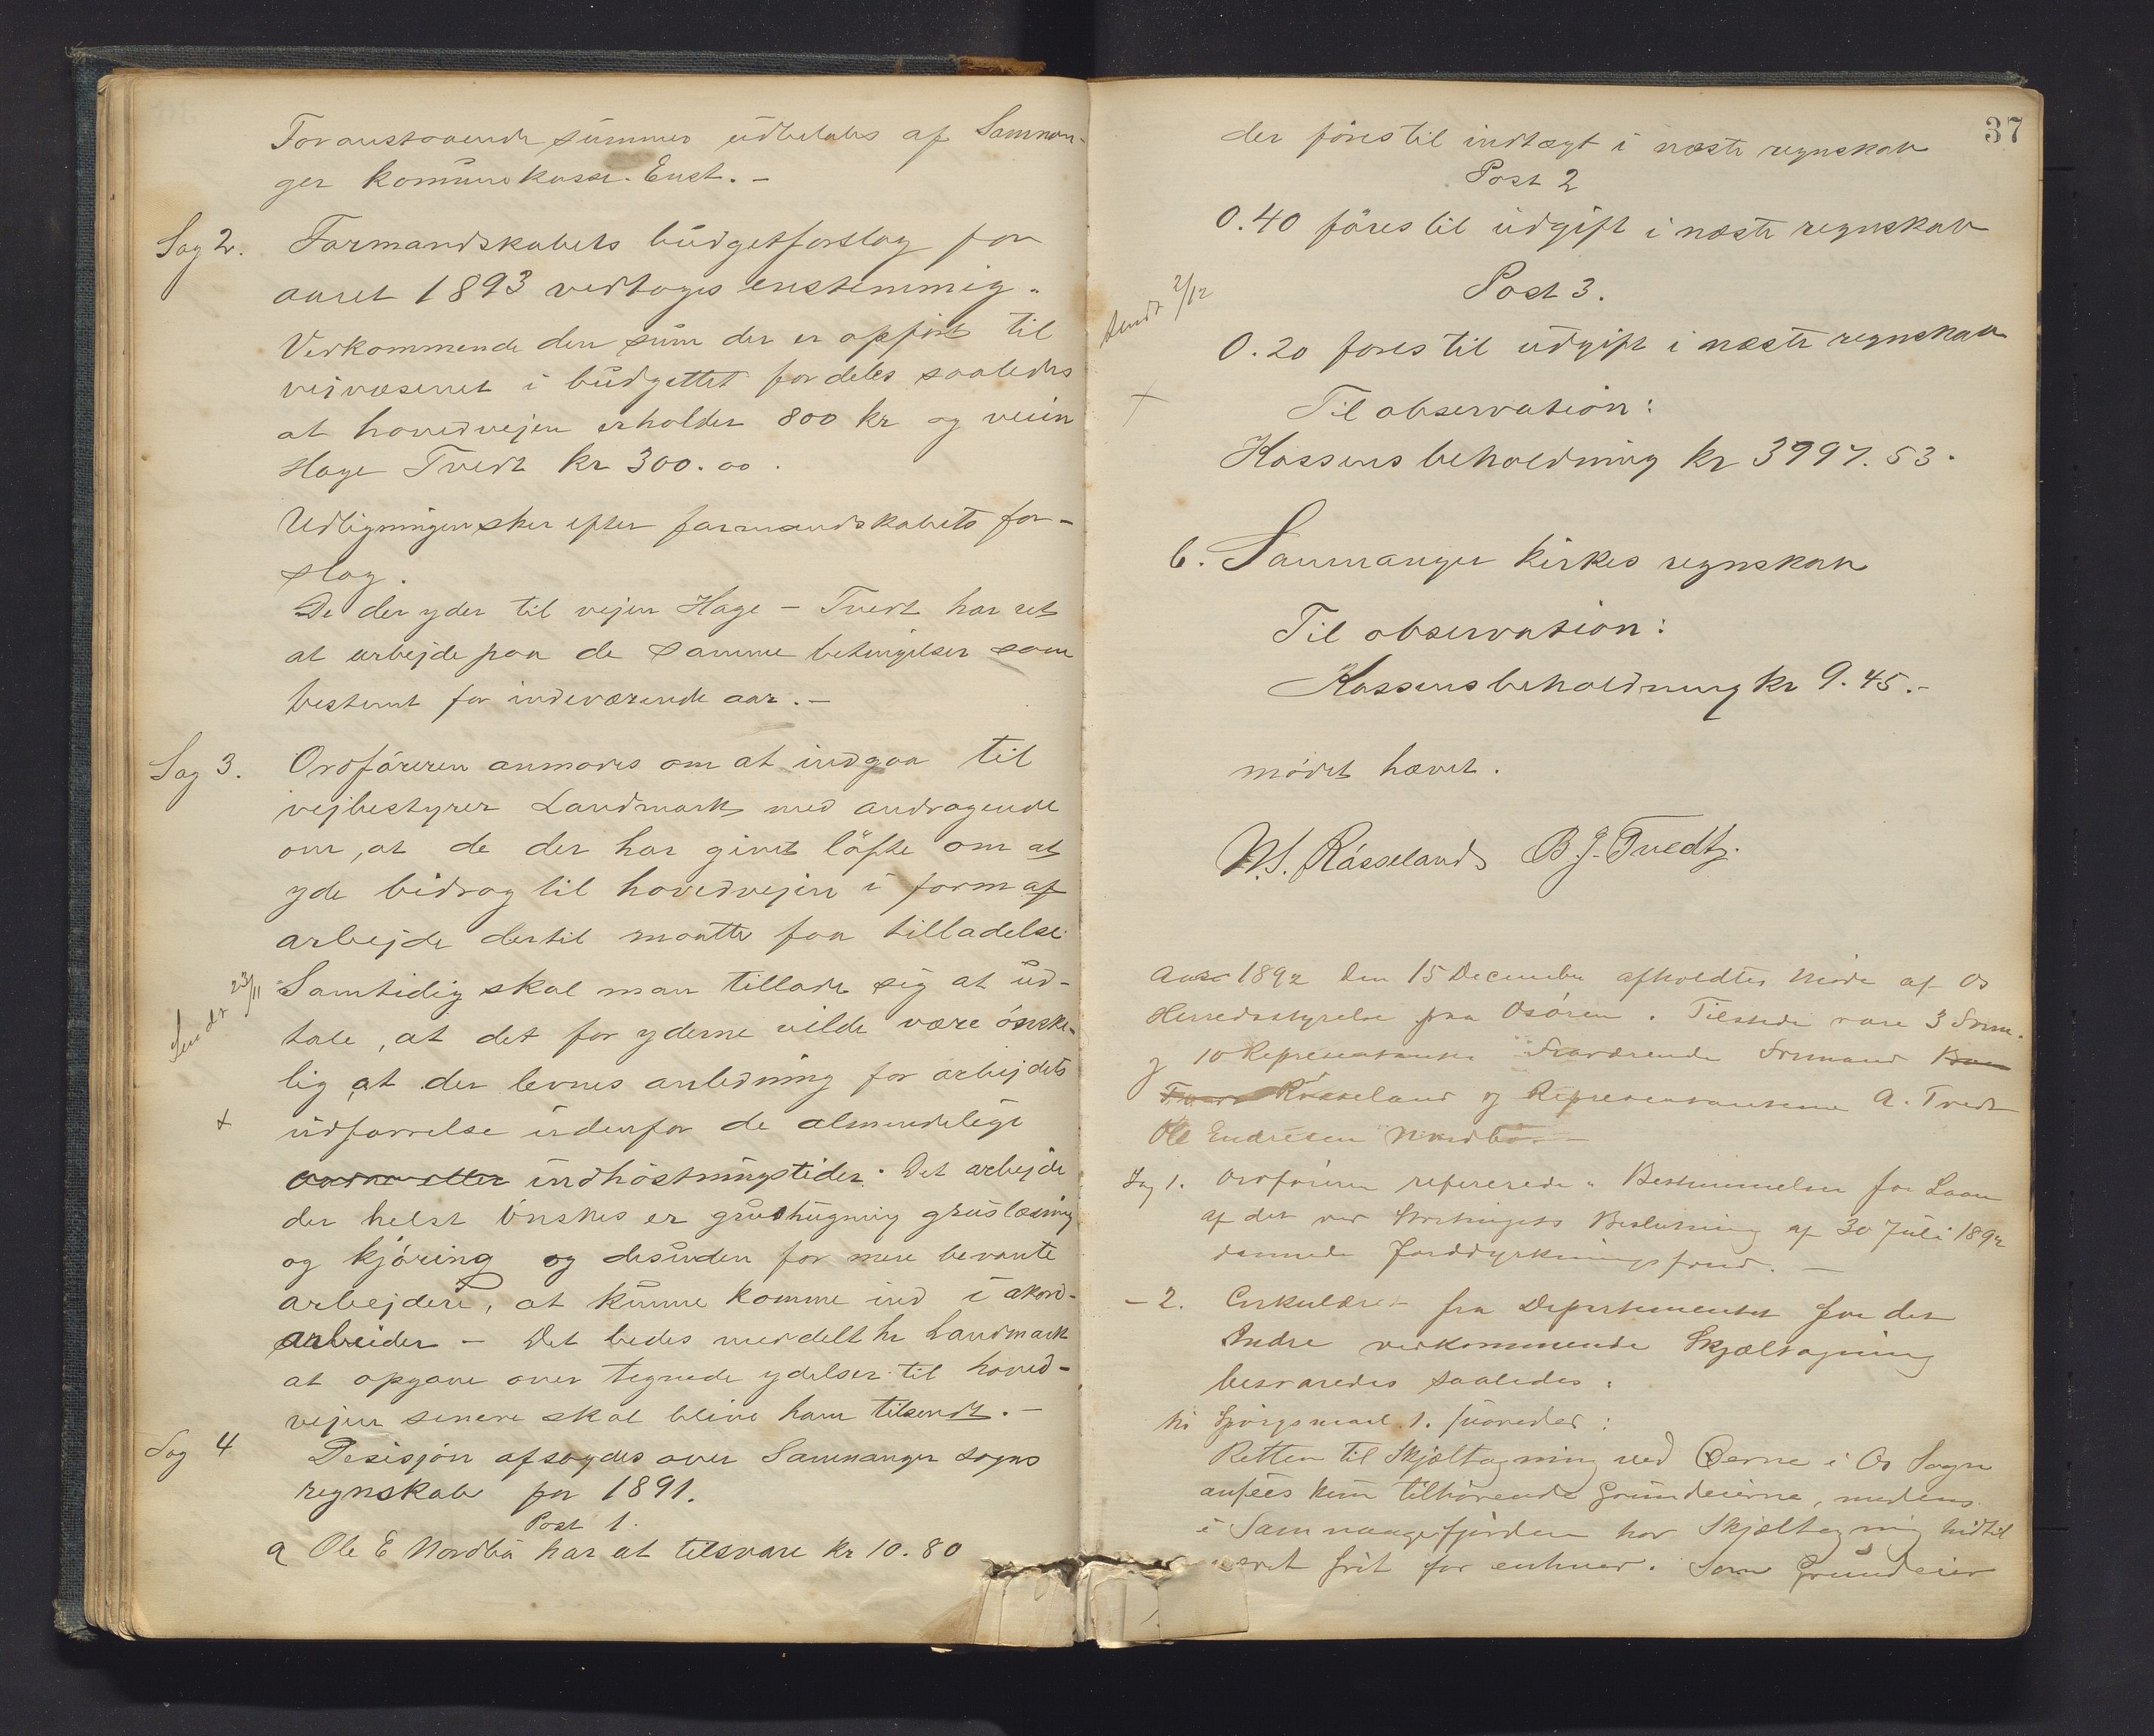 Foranstaaende summer udbetales af Samnan-
ger komunekasse. Enst. -
Sag 2. Formandskabets budgetforslag for
aaret 1893 vedtoges enstemmig.
Vedkommende den sum der er opført til
veivæsenet i budgettet fordeles saaledes
at hovedvejen erholder 800 kr og veien
Hage Tvedt kr 300.00.
Udligningen sker efter formandskabets for-
slag.
De der yder til vejen Hage - Tvedt har ret
at arbejde paa de samme betingelser som
bestemt for indeværende aar. -
Sag 3. Ordføreren anmodes om at indgaa til
vejbestyrer Landmark med andragende
om, at de der har givet löfte om at
yde bidrag til hovedvejen i form af
arbejde dertil maatte faa tilladelse.
Sendt 23/11
Samtidig skal man tillade sig at ud-
tale, at det for yderne vilde være ønske-
lig at der levnes anledning for arbejdets
+ udførrelse udenfor de almindelige
vaarn eller indhöstningstider. Det arbejde
der helst ønskes er grushugning gruslæsning
og kjöring og desuden for mere bevante
arbejdere, at kunne komme ind i akord-
arbeider - Det bedes meddelt hr Landmark
at opgave over tegnede ydelser til hoved-
vejen senere skal blive ham tilsendt. -
Sag 4 Desisjon afsagdes over Samnanger sogns
regnskab for 1891.
Post 1.
a Ole E Nordbö har at tilsvare kr 10.80
37
der föres til indtægt i næste regnskab
Post 2
0.40 föres til udgift i næste regnskab
Sendt 2/12
Post 3.
0.20 föres til udgift i næste regnskab
+
Til observation:
Kassens beholdning kr 3997.53.
b. Samnanger kirkes regnskab
Til observation:
Kassens beholdning kr 9.45.-
mødet hævet.
N.S. Röseland B J. Tvedt
Aar 1892 den 15 December afholdtes Møde af Os
Herredsstyrelse paa Osören. Tilstede vare 3 Form.
og 10 Repræsentanter Fraværende Formand
Röseland og Repræsentanterne A. Tvedt
Ole Endresen Nordbö. -
Sag 1. Ordföreren refererede "Bestemmelser for Laan
af det ved Storthingets Beslutning af 30 Juli 1892
dannede Jorddyrkningsfond. -
- 2. Cirkulære fra Departementet for det
Indre vedkommende Skjæltagning
besvaredes saaledes:
Spörgsmaal 1. svaredes:
Retten til Skjæltagning ved Öerne i Os Sogn
ansees kun tilhörende Grundeierne, medens
i Samnangerfjorden har Skjæltagning hidtil
været frit for enhver. Som Grundeier